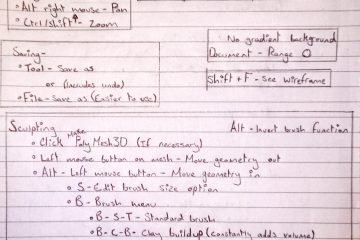 • Alt right mouse - Pan
• Ctrl/Shift - Zoom
No gradient background
Document - Range 0
Shift + F - See wireframe
Saving -
• Tool - Save as
or (Includes undo)
• File - Save as (Easier to use)
Sculpting
Alt - Invert brush function
• Click Make PolyMesh3D (If necessary)
• Left mouse button on mesh - Move geometry out
• Alt - Left mouse button - Move geometry in
• S - Edit brush size option
• B - Brush menu
• B - S - T - Standard brush
• B - C - B - Clay buildup (constantly adds volume)